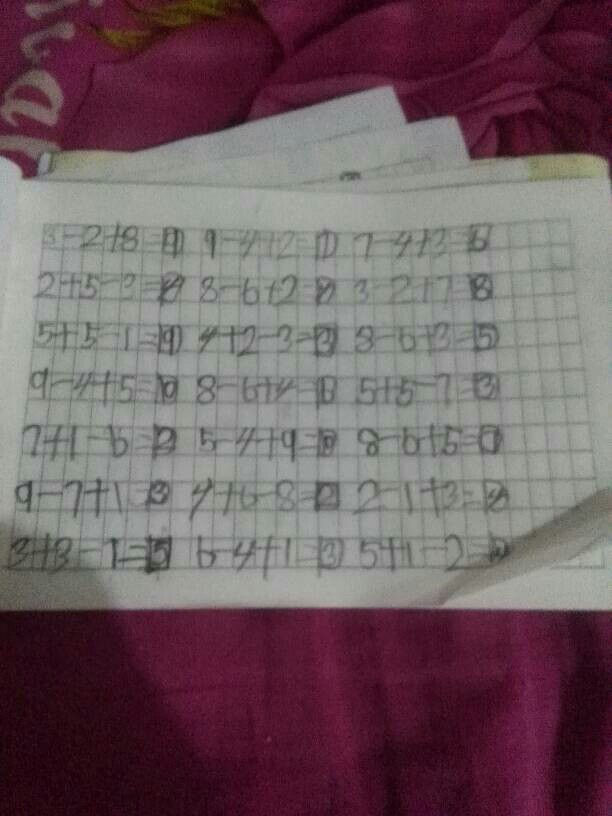 3-2+8=9 9-4+2=7 7-4+3=6
2+5-3=4 8-6+2= 3-2+7=8
5+5-1=9 4+2-3=3 8-6+3=5
9-4+5=10 8-6+4= 5+5-7=3
7+1-6=2 5-4+9=10 8-6+5=7
9-7+1=3 4+6-8=2 2-1+3=
3+3-1=5 6-4+1=3 5+1-2=